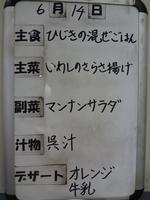 6月14日
主食 ひじきの混ぜごはん
主菜 いわしのさらさ揚げ
副菜 マンナンサラダ
汁物 呉汁
デザート オレンジ
牛乳